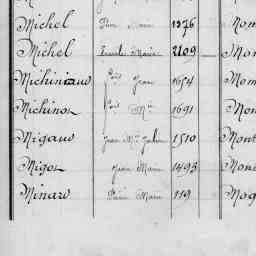 Michel Pierre Marie 1376 Mo
Michel Emile Marie 2109 Mo
Michiniaud Jean 1654 Mo
Michinot Mie 1691 Mo
Migaud Jean Mie Julien 1510 Mont
Migot Jean Marie 1493 Mon
Minard Pierre Marie 119 Mog